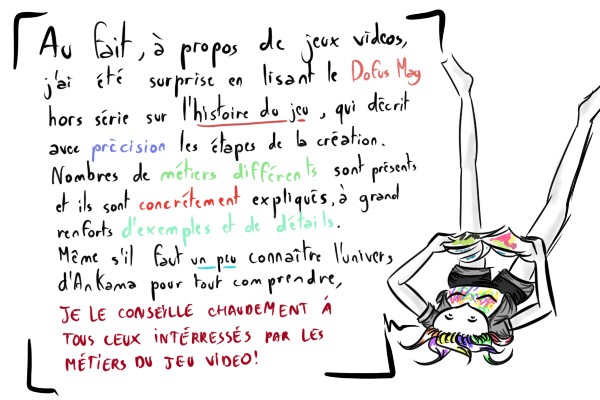 Au fait, à propos de jeux videos,
j'ai été surprise en lisant le Dofus Mag
hors série sur l'histoire du jeu, qui décrit
avec précision les étapes de la création.
Nombres de métiers différents sont présents
et ils sont concrétement expliqués, à grand
renforts d'exemples et de détails.
Même s'il faut un peu connaître l'univers
d'Ankama pour tout comprendre,
JE LE CONSEILLE CHAUDEMENT À
TOUS CEUX INTÉRRESSÉS PAR LES
MÉTIERS DU JEU VIDEO!